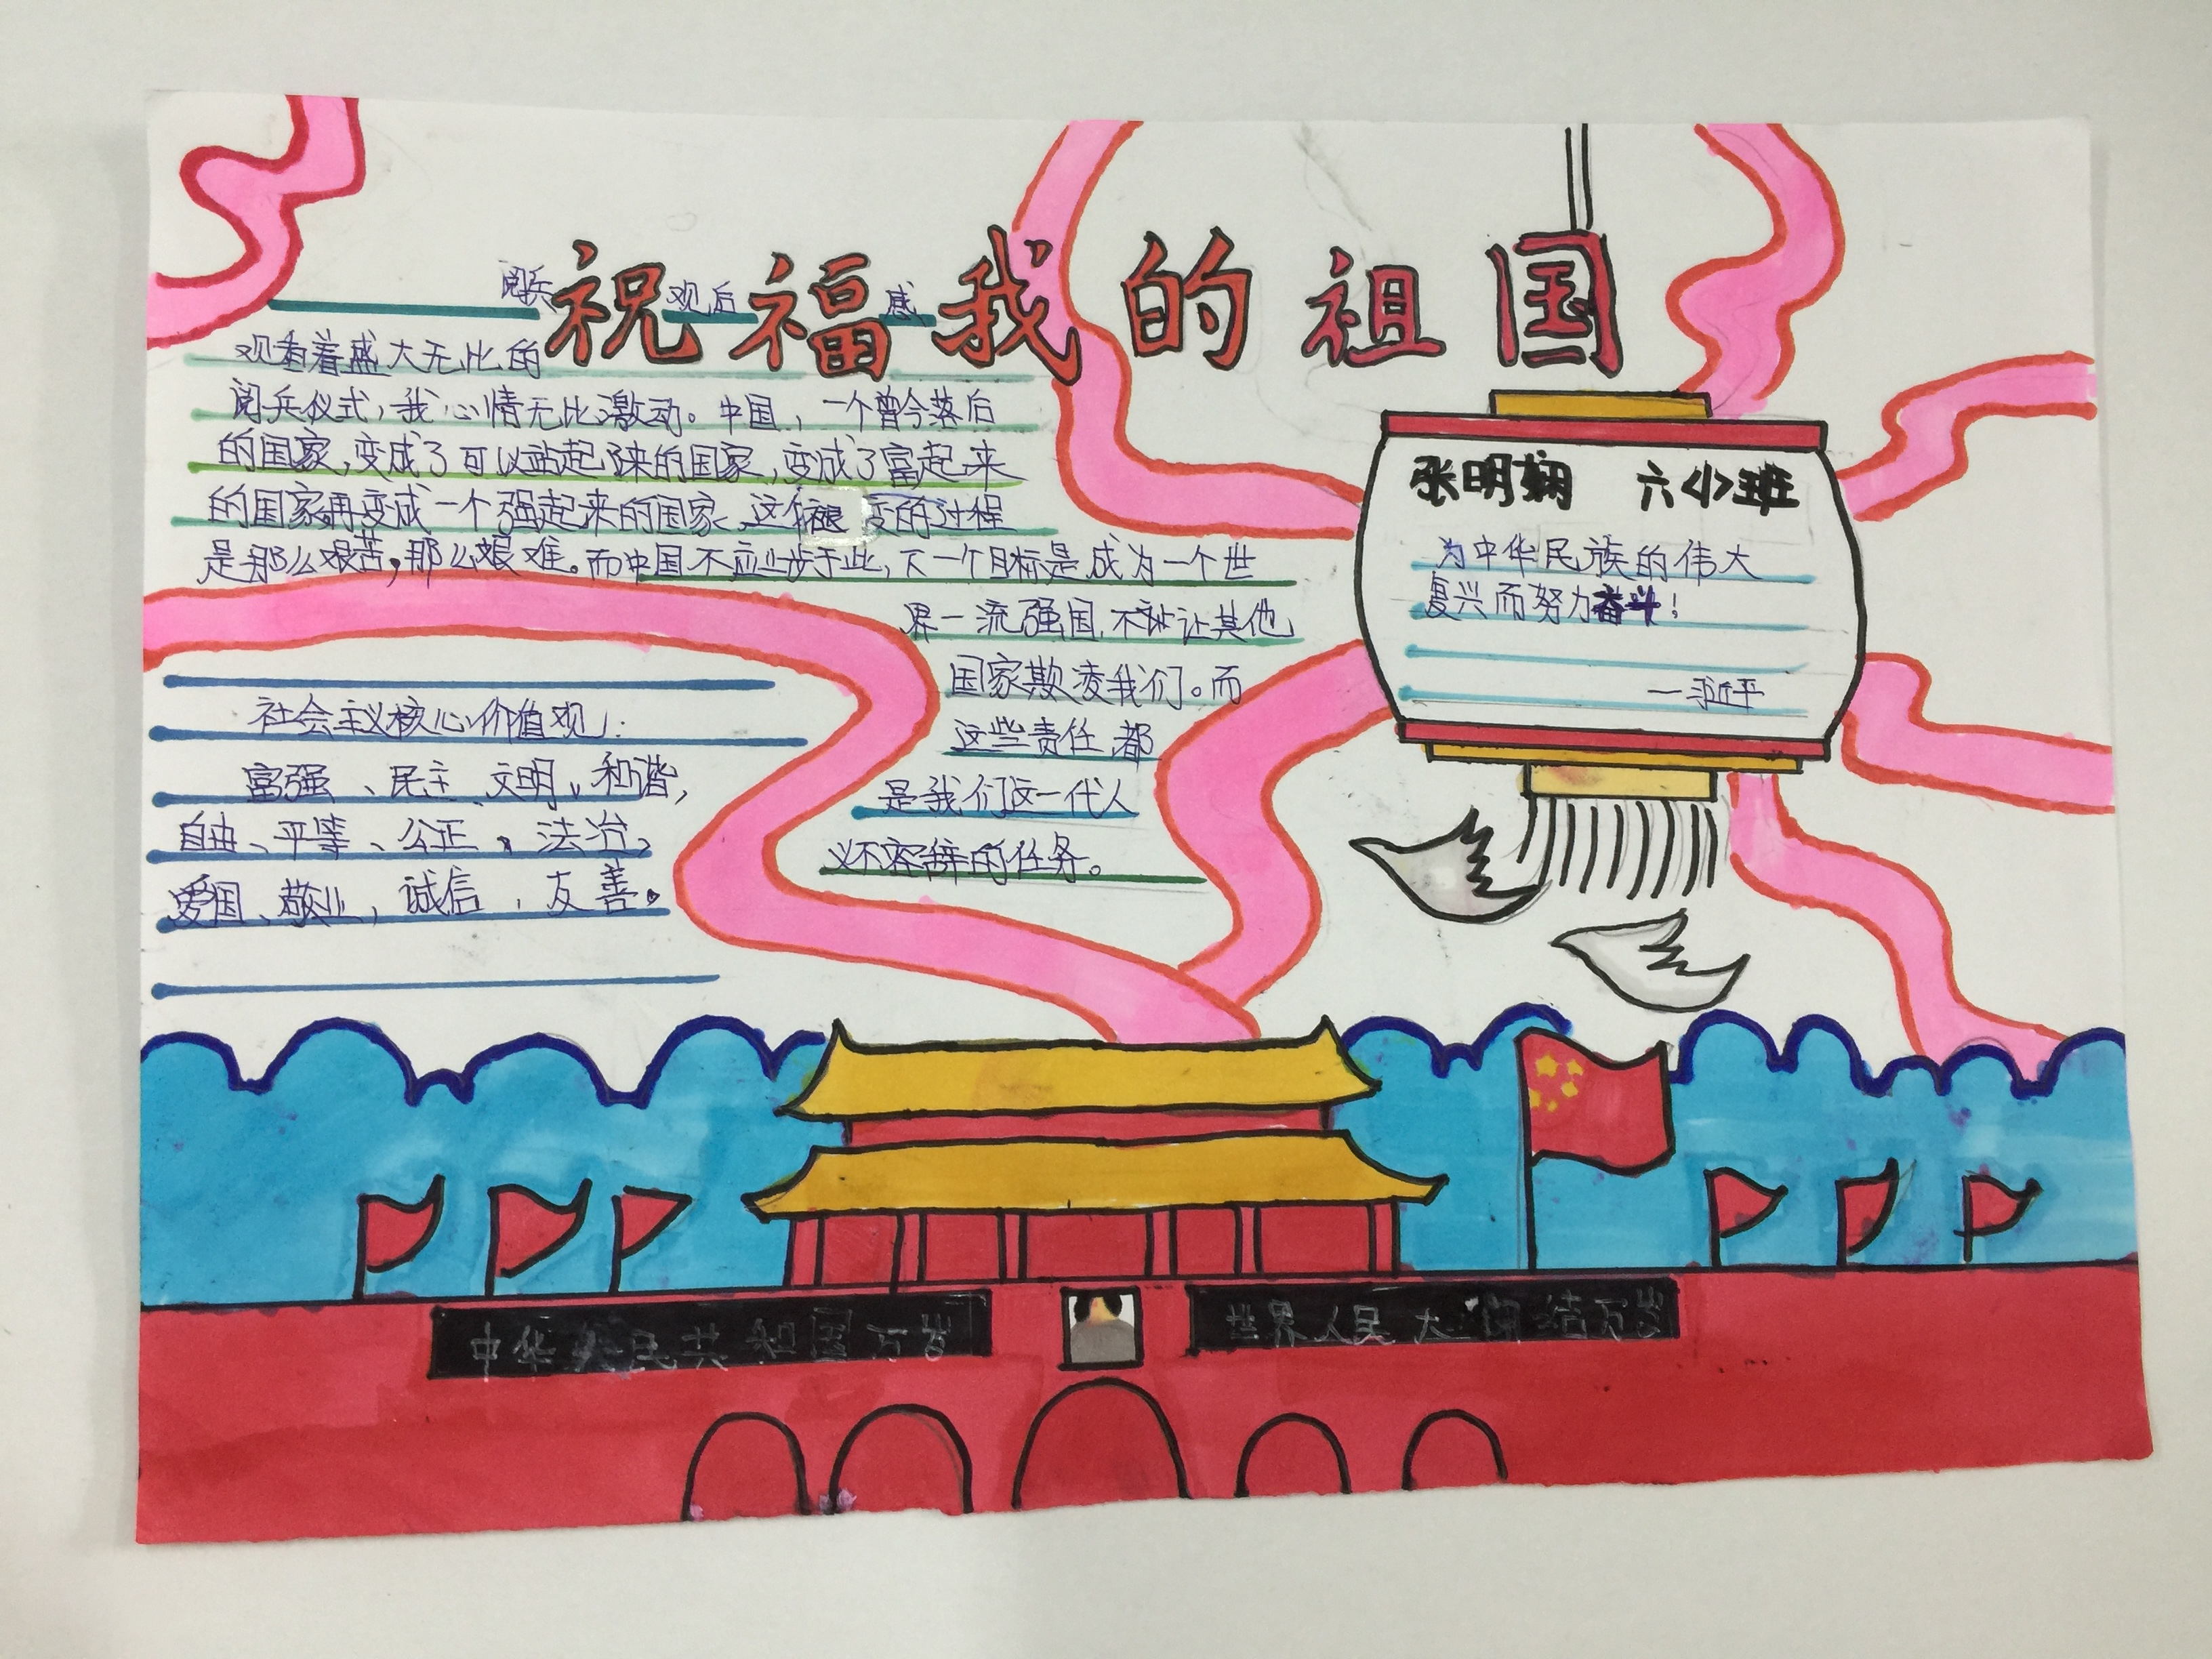 祝福我的祖国
阅兵观后感
观看着盛大无比的
阅兵仪式，我心情无比激动。中国，一个曾今落后
的国家，变成了可以站起来的国家，变成了富起来
的国家再变成一个强起来的国家，这个 变的过程
是那么艰苦，那么艰难。而中国不应止步于此，下一个目标是成为一个世
界一流强国，不被让其他
国家欺凌我们。而
这些责任都
是我们这一代人
义不容辞的任务。
社会主义核心价值观：
富强、民主、文明、和谐，
自由、平等、公正、法治，
爱国、敬业，诚信，友善。
张明娴 六（小）班
为中华民族的伟大
复兴而努力奋斗！
—习近平
中华人民共和国万岁
世界人民大团结万岁